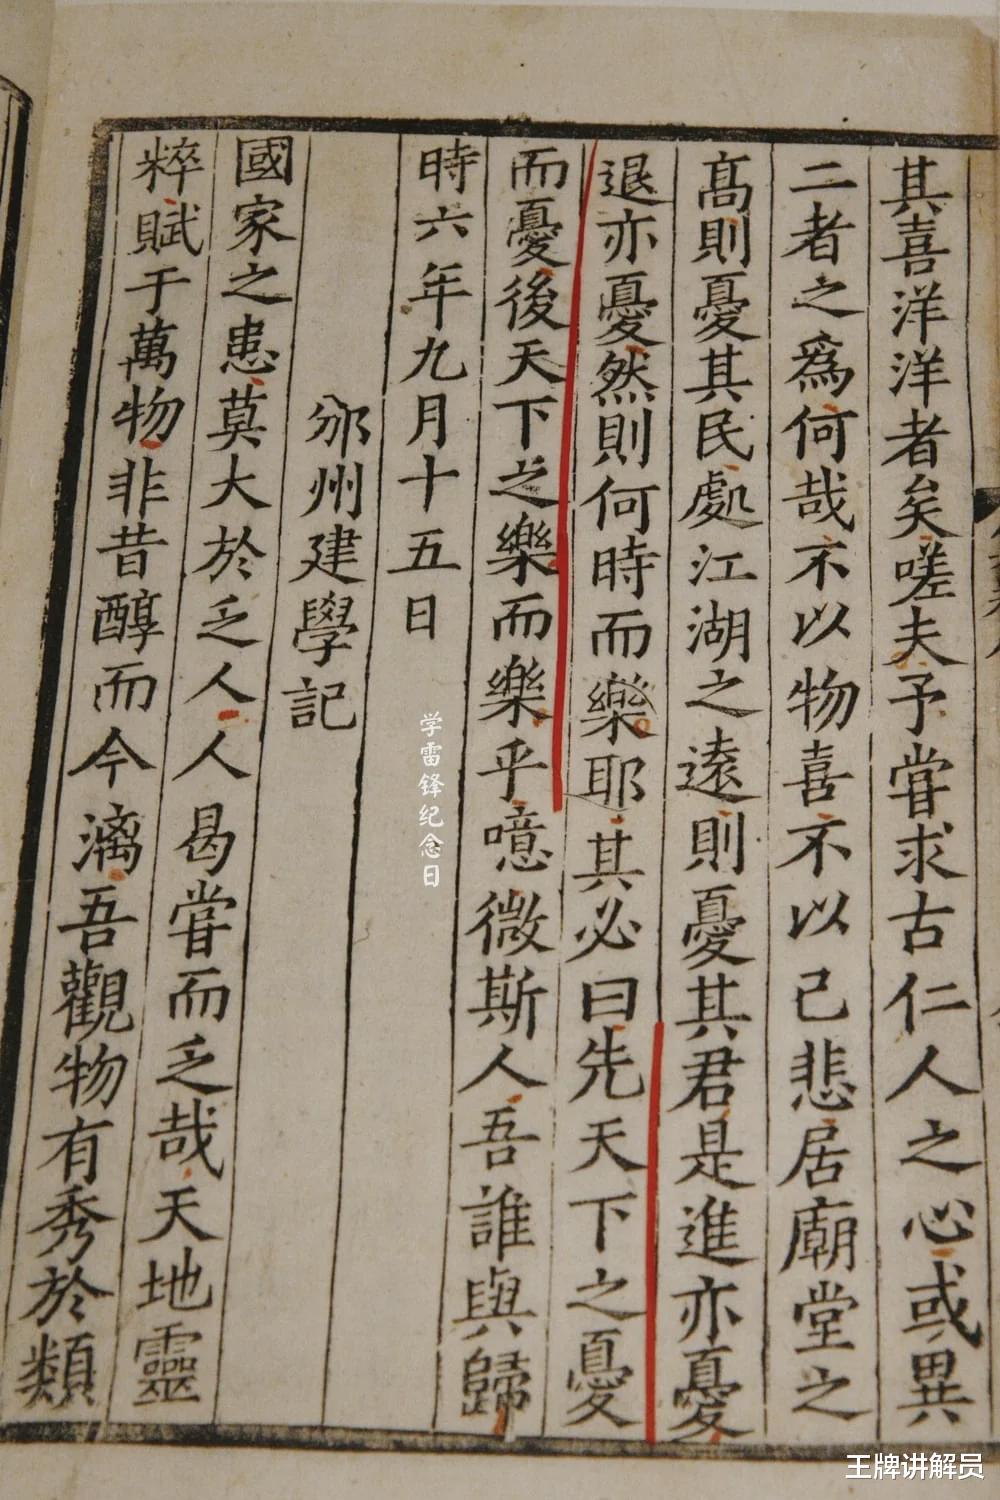 其喜洋洋者矣嗟夫予嘗求古仁人之心或異
二者之爲何哉不以物喜不以己悲居廟堂之
髙則憂其民處江湖之遠則憂其君是進亦憂
退亦憂然則何時而樂耶其必曰先天下之憂
而憂後天下之樂而樂乎噫微斯人吾誰與歸
時六年九月十五日
邠州建學記
國家之患莫大於乏人人曷嘗而乏哉天地靈
粹賦于萬物非昔醇而今漓吾觀物有秀於類
学雷锋纪念日
王牌讲解员